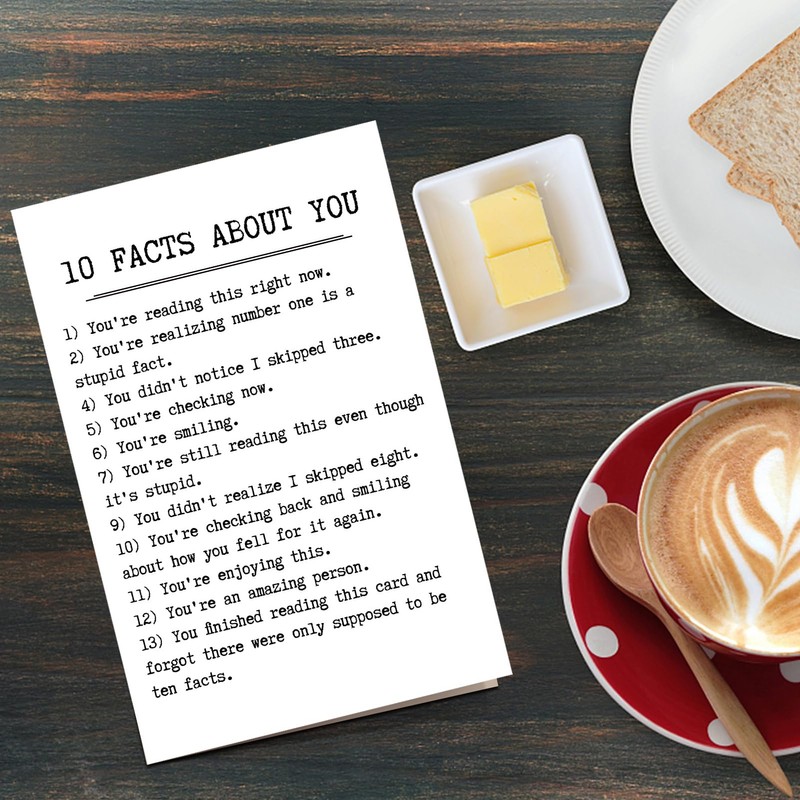 10 FACTS ABOUT YOU
1) You're reading this right now.
2) You're realizing number one is a
stupid fact.
4) You didn't notice I skipped three.
5) You're checking now.
6) You're smiling.
7) You're still reading this even though
it's stupid.
9) You didn't realize I skipped eight.
10) You're checking back and smiling
about how you fell for it again.
11) You're enjoying this.
12) You're an amazing person.
13) You finished reading this card and
forgot there were only supposed to be
ten facts.